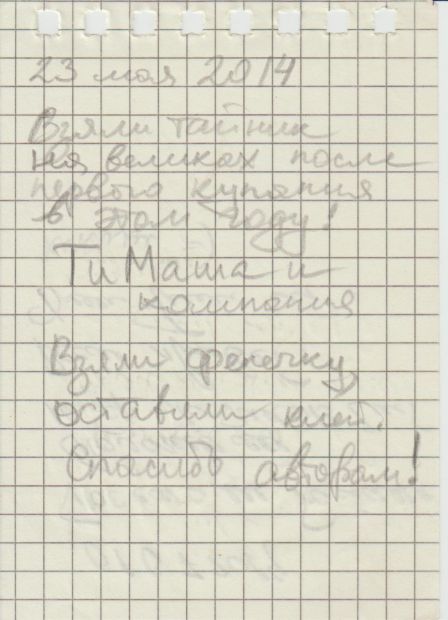 23 мая 2014
Взяли тайник
на великах после
первого купания
в этом году!
ТиМаша и
компания
Взяли фенечку,
оставили клей.
Спасибо авторам!